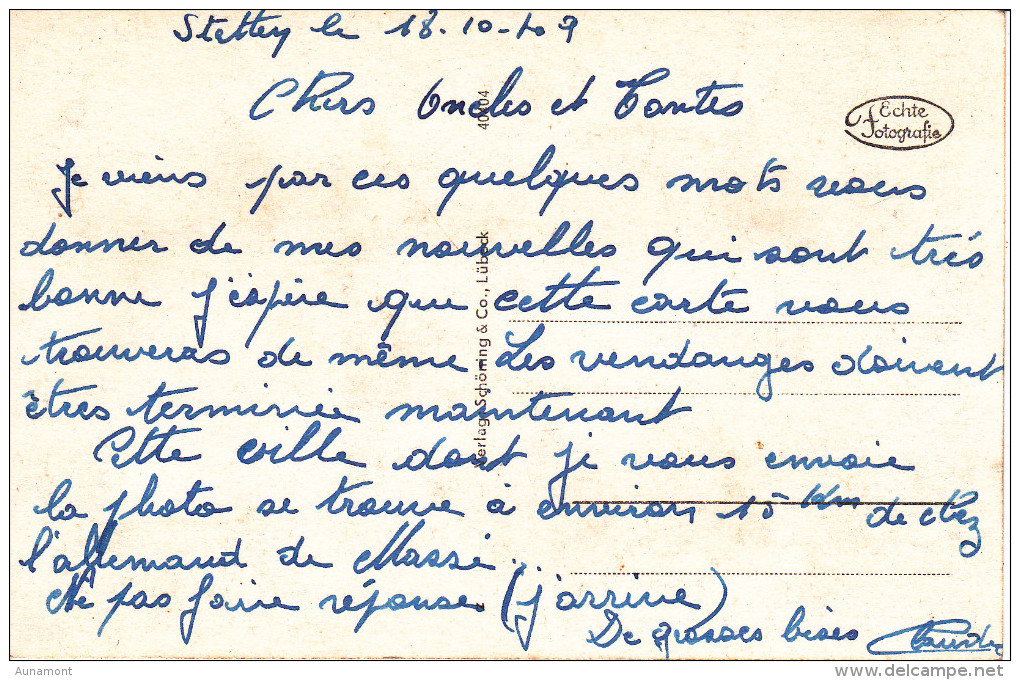 Stetten le 18-10-
Chers Oncles et Tantes
40404
Echte
fotografie
Je viens par ces quelques mots vous
donner de mes nouvelles qui sont très
bonne j'éspère que cette carte vous
trouveras de même Les vendanges doivent
êtres terminée maintenant
Cette ville dont je vous envoie
la photo se trouve à environ 15 Km de chez
l'allemand de Massé..
Ne pas faire réponse (j'arrive)
De grosses bises
Verlag Schöning & Co., Lübeck
Aunamont
www.delcampe.net